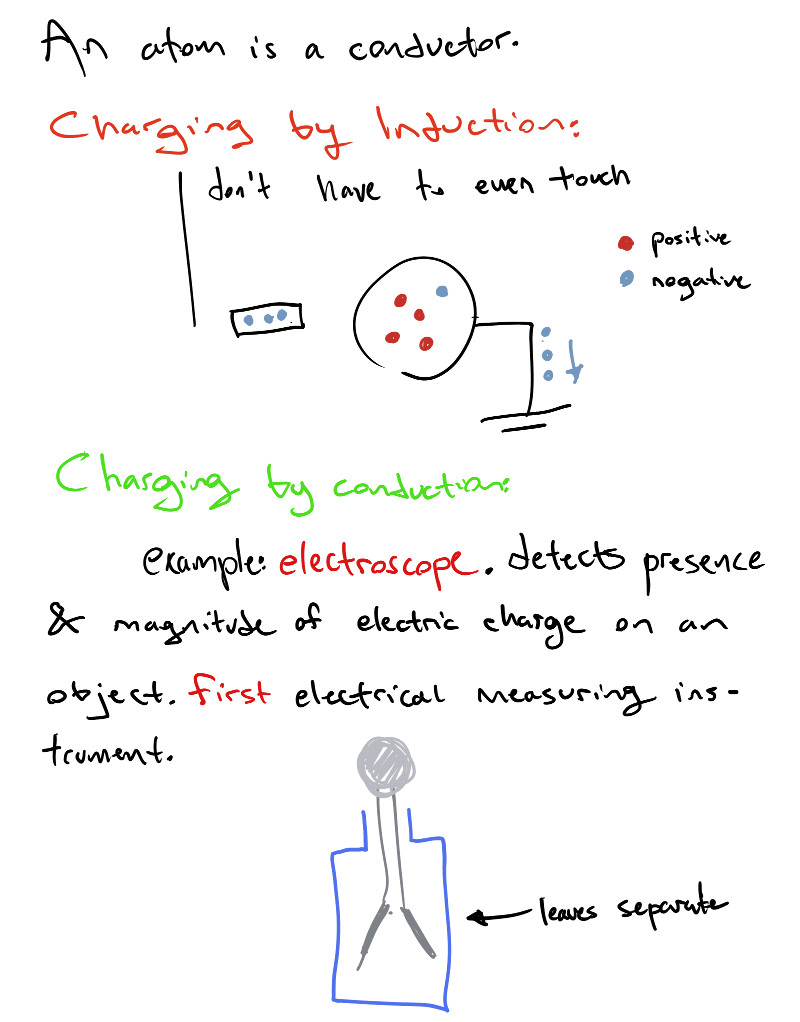 An atom is a conductor.
Charging by Induction:
don't have to even touch
positive
negative
Charging by conduction:
example: electroscope. detects presence
& magnitude of electric charge on an
object. First electrical measuring ins-
trument.
leaves separate